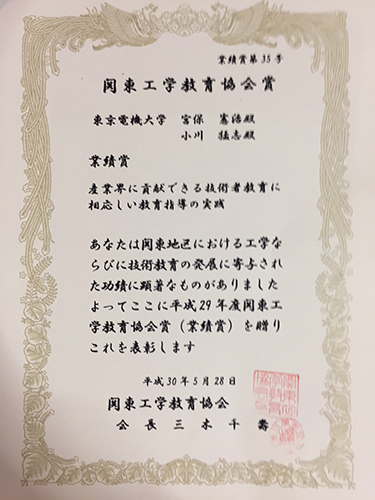 業績賞第35号
関東工学教育協会賞
東京電機大学 宮保 憲治殿
小川 猛志殿
業績賞
産業界に貢献できる技術者教育に
相応しい教育指導の実践
あなたは関東地区における工学な
らびに技術教育の発展に寄与され
た功績に顕著なものがありました
よってここに平成29年度関東工
学教育協会賞(業績賞)を贈り
これを表彰します
平成30年5月28日
関東工学教育協会
会長三木千壽